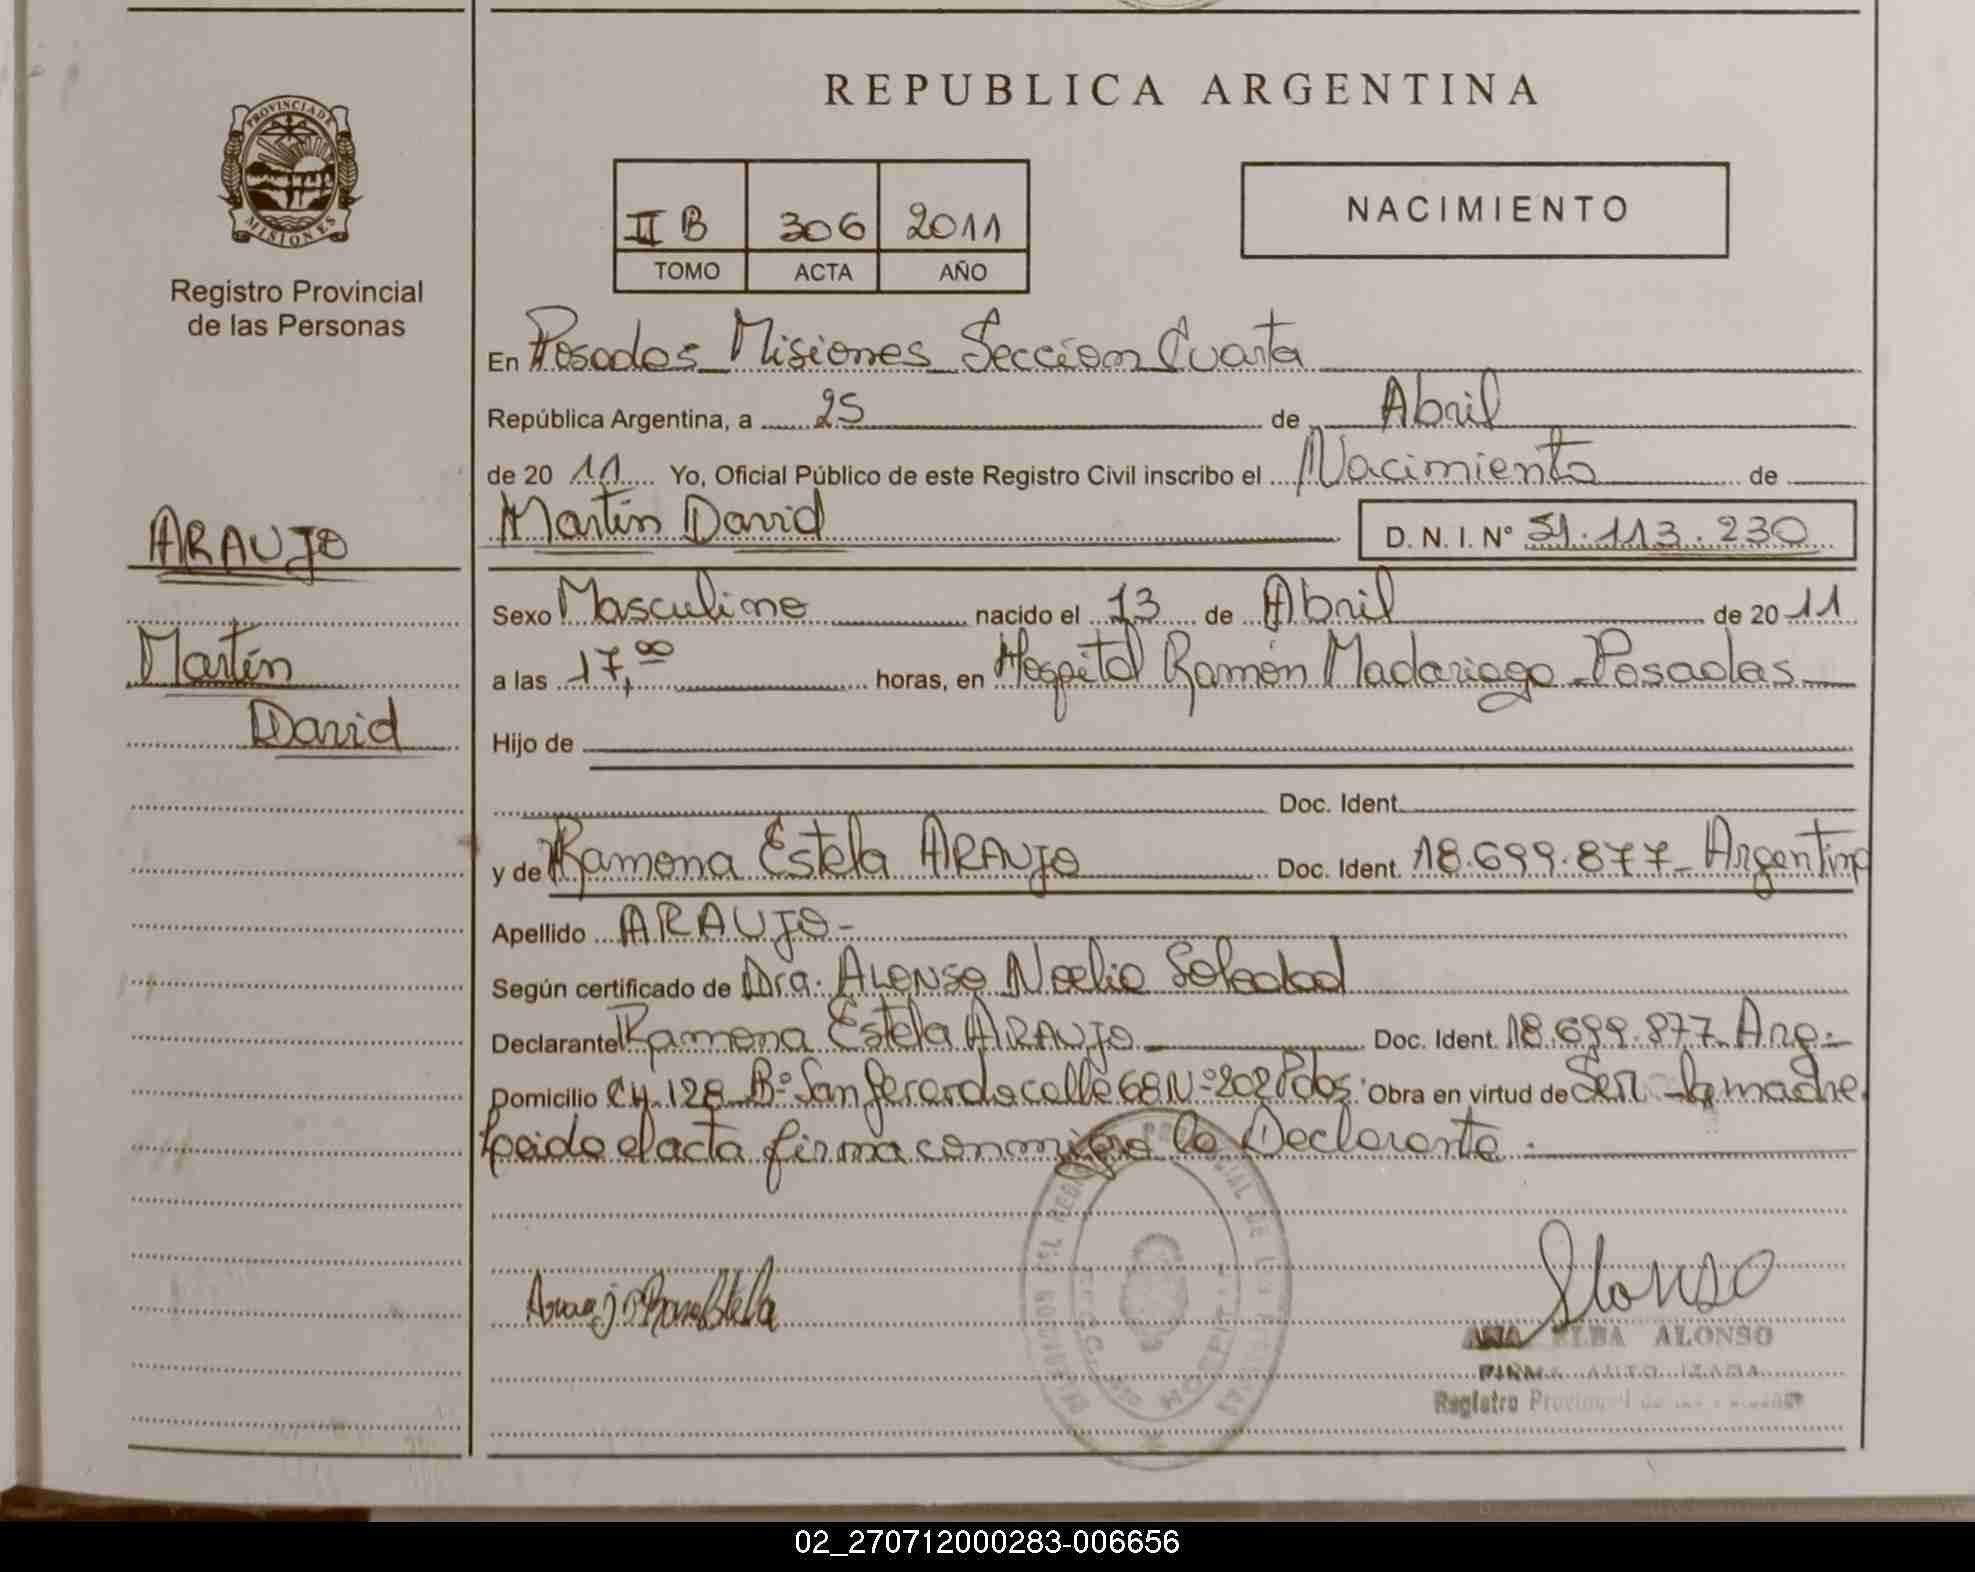 REPUBLICA ARGENTINA
PROVINCIA DE MISIONES
Registro Provincial
de las Personas
II B 306 2011
TOMO ACTA AÑO
NACIMIENTO
En Posadas Misiones Seccion Cuarta
República Argentina, a 25 de Abril
de 20 11 Yo, Oficial Público de este Registro Civil inscribo el Nacimiento de
Martín David D. N. I. N° 51.113.230
ARAUJO
Martín
David
Sexo Masculino nacido el 13 de Abril de 20 11
a las 17,00 horas, en Hospital Ramón Madariaga Posadas
Hijo de
Doc. Ident.
y de Ramona Estela ARAUJO Doc. Ident. 18.699.877 Argentina
Apellido ARAUJO-
Según certificado de Dra. ALONSO Noelia Soledad
Declarante Ramona Estela ARAUJO Doc. Ident. 18.699.877 Arg.-
Domicilio CH. 128 B° San Gerardo calle 68 N° 202 Pdas. Obra en virtud de Ser la madre.
Leido el acta firma conmigo la Declarante.
Alonso
ANA ELBA ALONSO
FIRMA AUTORIZADA
Registro Provincial de las Personas
02_270712000283-006656